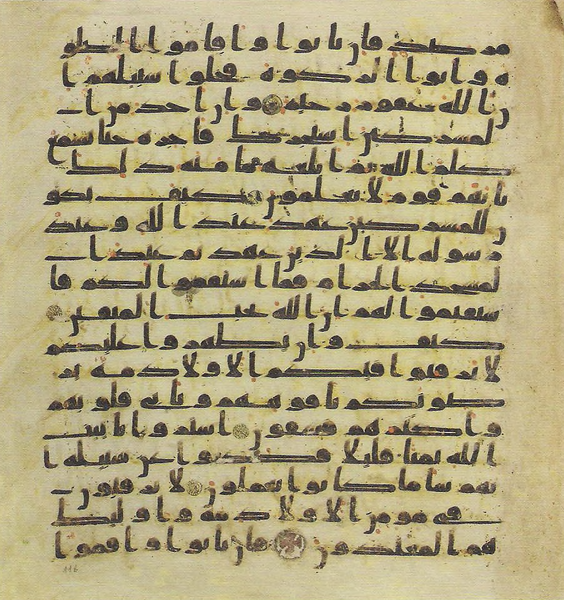 مرصد فان تابوا واقاموا الصلو
ه واتوا الزكوه فخلوا سبيلهم ا
ن الله غفور رحيم وان احد من ا
لمشركين استجارك فاجره حتى يسمع
كلم الله ثم ابلغه مامنه ذلك
بانهم قوم لا يعلمون كيف يكو
ن للمشركين عهد عند الله وعند
رسوله الا الذين عهدتم عند ا
لمسجد الحرام فما استقموا لكم فا
ستقيموا لهم ان الله يحب المتقين
كيف وان يظهروا عليكم
لا يرقبوا فيكم الا ولا ذمه ير
ضونكم بافوههم وتابى قلوبهم
واكثرهم فسقون اشتروا بايت
الله ثمنا قليلا فصدوا عن سبيله ا
نهم سا ما كانوا يعملون لا يرقبون
في مومن الا ولا ذمه واوليك
هم المعتدون فان تابوا واقموا
116